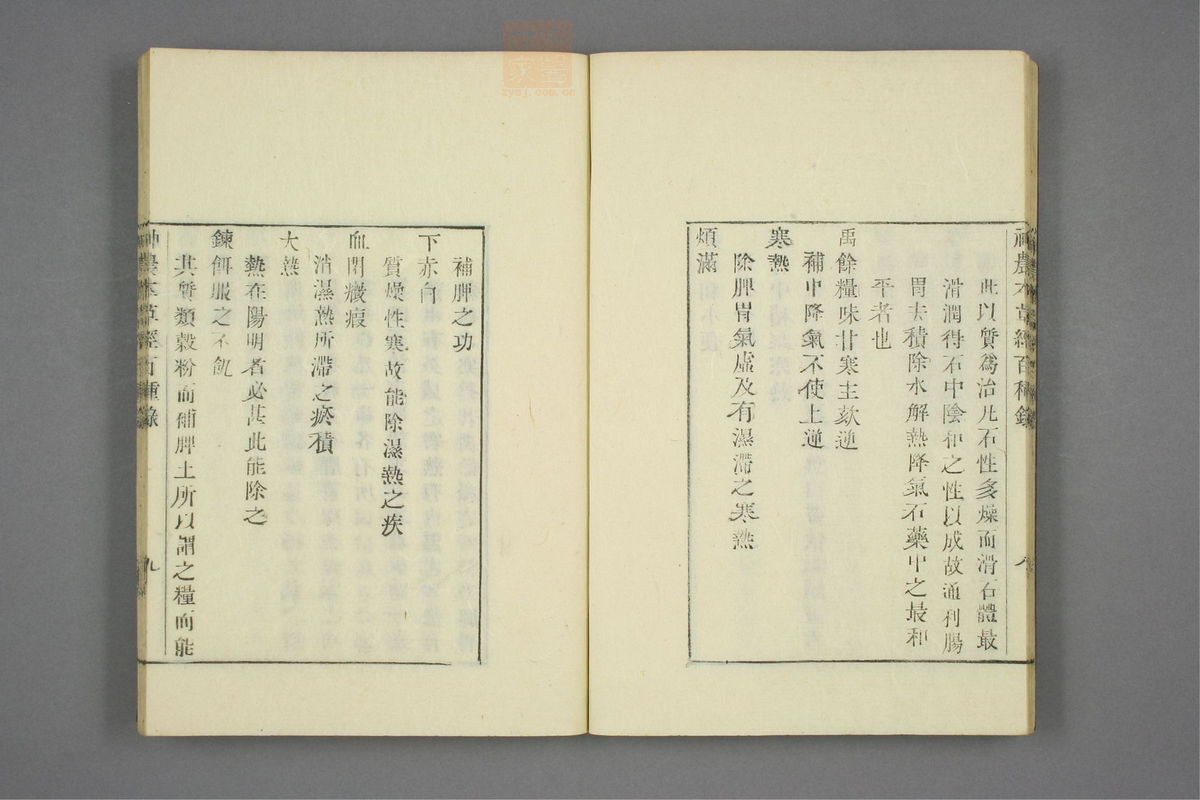 神農本草經百種錄
此以質爲治凡石性多燥而滑石體最
滑潤得石中陰和之性以成故通利腸
胃去積除水解熱降氣石藥中之最和
平者也
禹餘糧味甘寒主欬逆
補中降氣不使上逆
寒熱
除脾胃氣虛及有濕滯之寒熱
煩滿
補脾之功
下赤白
質燥性寒故能除濕熱之疾
血閉癥瘕
消濕熱所滯之瘀積
大熱
熱在陽明者必甚此能除之
鍊餌服之不飢
其質類穀粉而補脾土所以謂之糧而能
神農本草經百種錄
九
zysj.com.cn